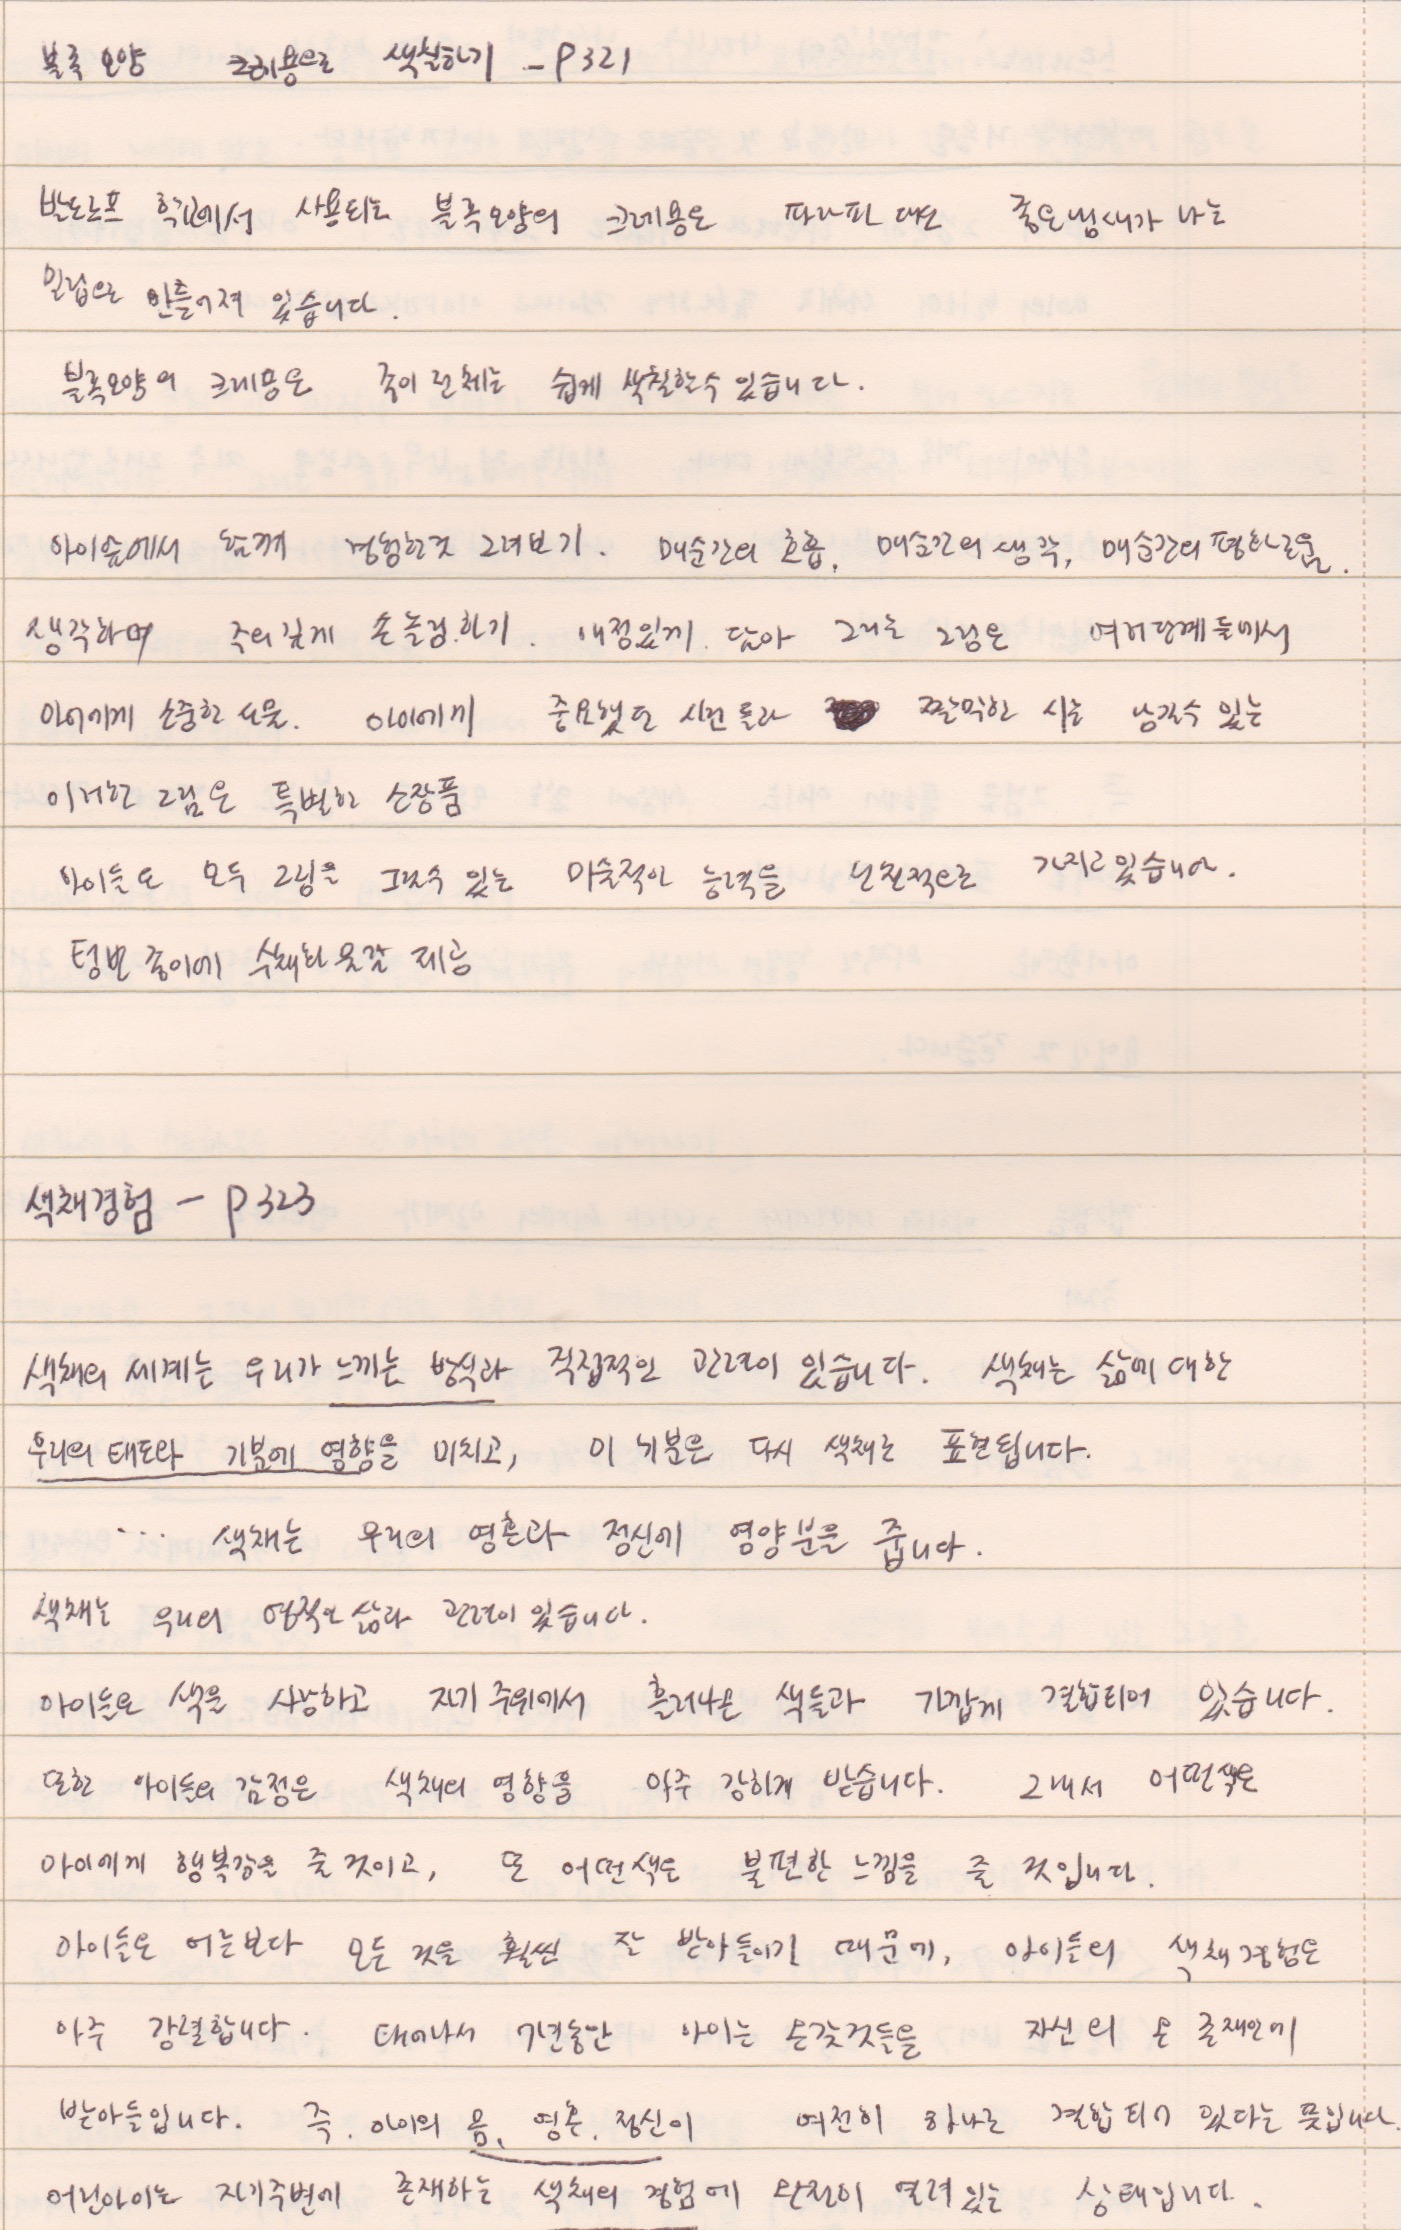 블록모양 크레용으로 색칠하기 - P321
발도르프 학교에서 사용되는 블록모양의 크레용은 파라핀 대신 좋은냄새가 나는
밀랍으로 만들어져 있습니다.
블록모양의 크레용은 종이 전체를 쉽게 색칠할수 있습니다.
아이숲에서 함께 경험한것 그려보기. 매순간의 호흡, 매순간의 생각, 매순간의 평화로움.
생각하며 주의깊게 손놀림.하기. 애정있게 담아 그리는 그림은 여러단계들에서
아이에게 소중한 선물. 아이에게 중요했던 사건들과 짤막한 시를 남길수 있는
이러한 그림은 특별한 소장품
아이들은 모두 그림을 그릴수 있는 미술적인 능력을 선천적으로 가지고있습니다.
텅빈 종이에 수채화물감 제공
색채경험 - P323
색채의 세계는 우리가 느끼는 방식과 직접적인 관련이 있습니다. 색채는 삶에 대한
우리의 태도와 기분에 영향을 미치고, 이 기분은 다시 색채로 표현됩니다.
... 색채는 우리의 영혼과 정신에 영양분을 줍니다.
색채는 우리의 영적인 삶과 관련이 있습니다.
아이들은 색을 사랑하고 자기 주위에서 흘러나온 색들과 가깝게 결합되어 있습니다.
또한 아이들의 감정은 색채의 영향을 아주 강하게 받습니다. 그래서 어떤색은
아이에게 행복감을 줄 것이고, 또 어떤색은 불편한 느낌을 줄 것입니다.
아이들은 어른보다 모든 것을 훨씬 잘 받아들이기 때문에, 아이들의 색채경험은
아주 강렬합니다. 태어나서 7년동안 아이는 온갖것들을 자신의 온 존재안에
받아들입니다. 즉, 아이의 몸, 영혼, 정신이 여전히 하나로 결합되어 있다는 뜻입니다.
어린아이는 자기주변에 존재하는 색채의 경험에 완전히 열려있는 상태입니다.